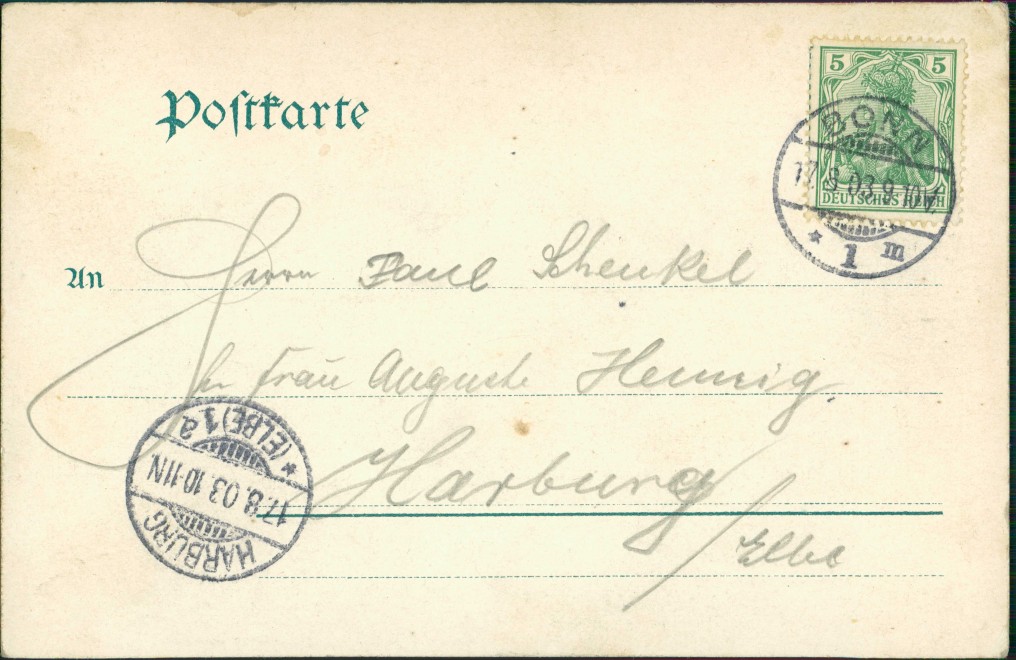 Postkarte
5 5
DEUTSCHES REICH
BONN
17.8.03.9-10V.
* 1 m
An Herrn Paul Schenkel
Frau Auguste Hennig
Harburg
/Elbe
HARBURG
17.8.03.10-11N
* (ELBE) 1 a